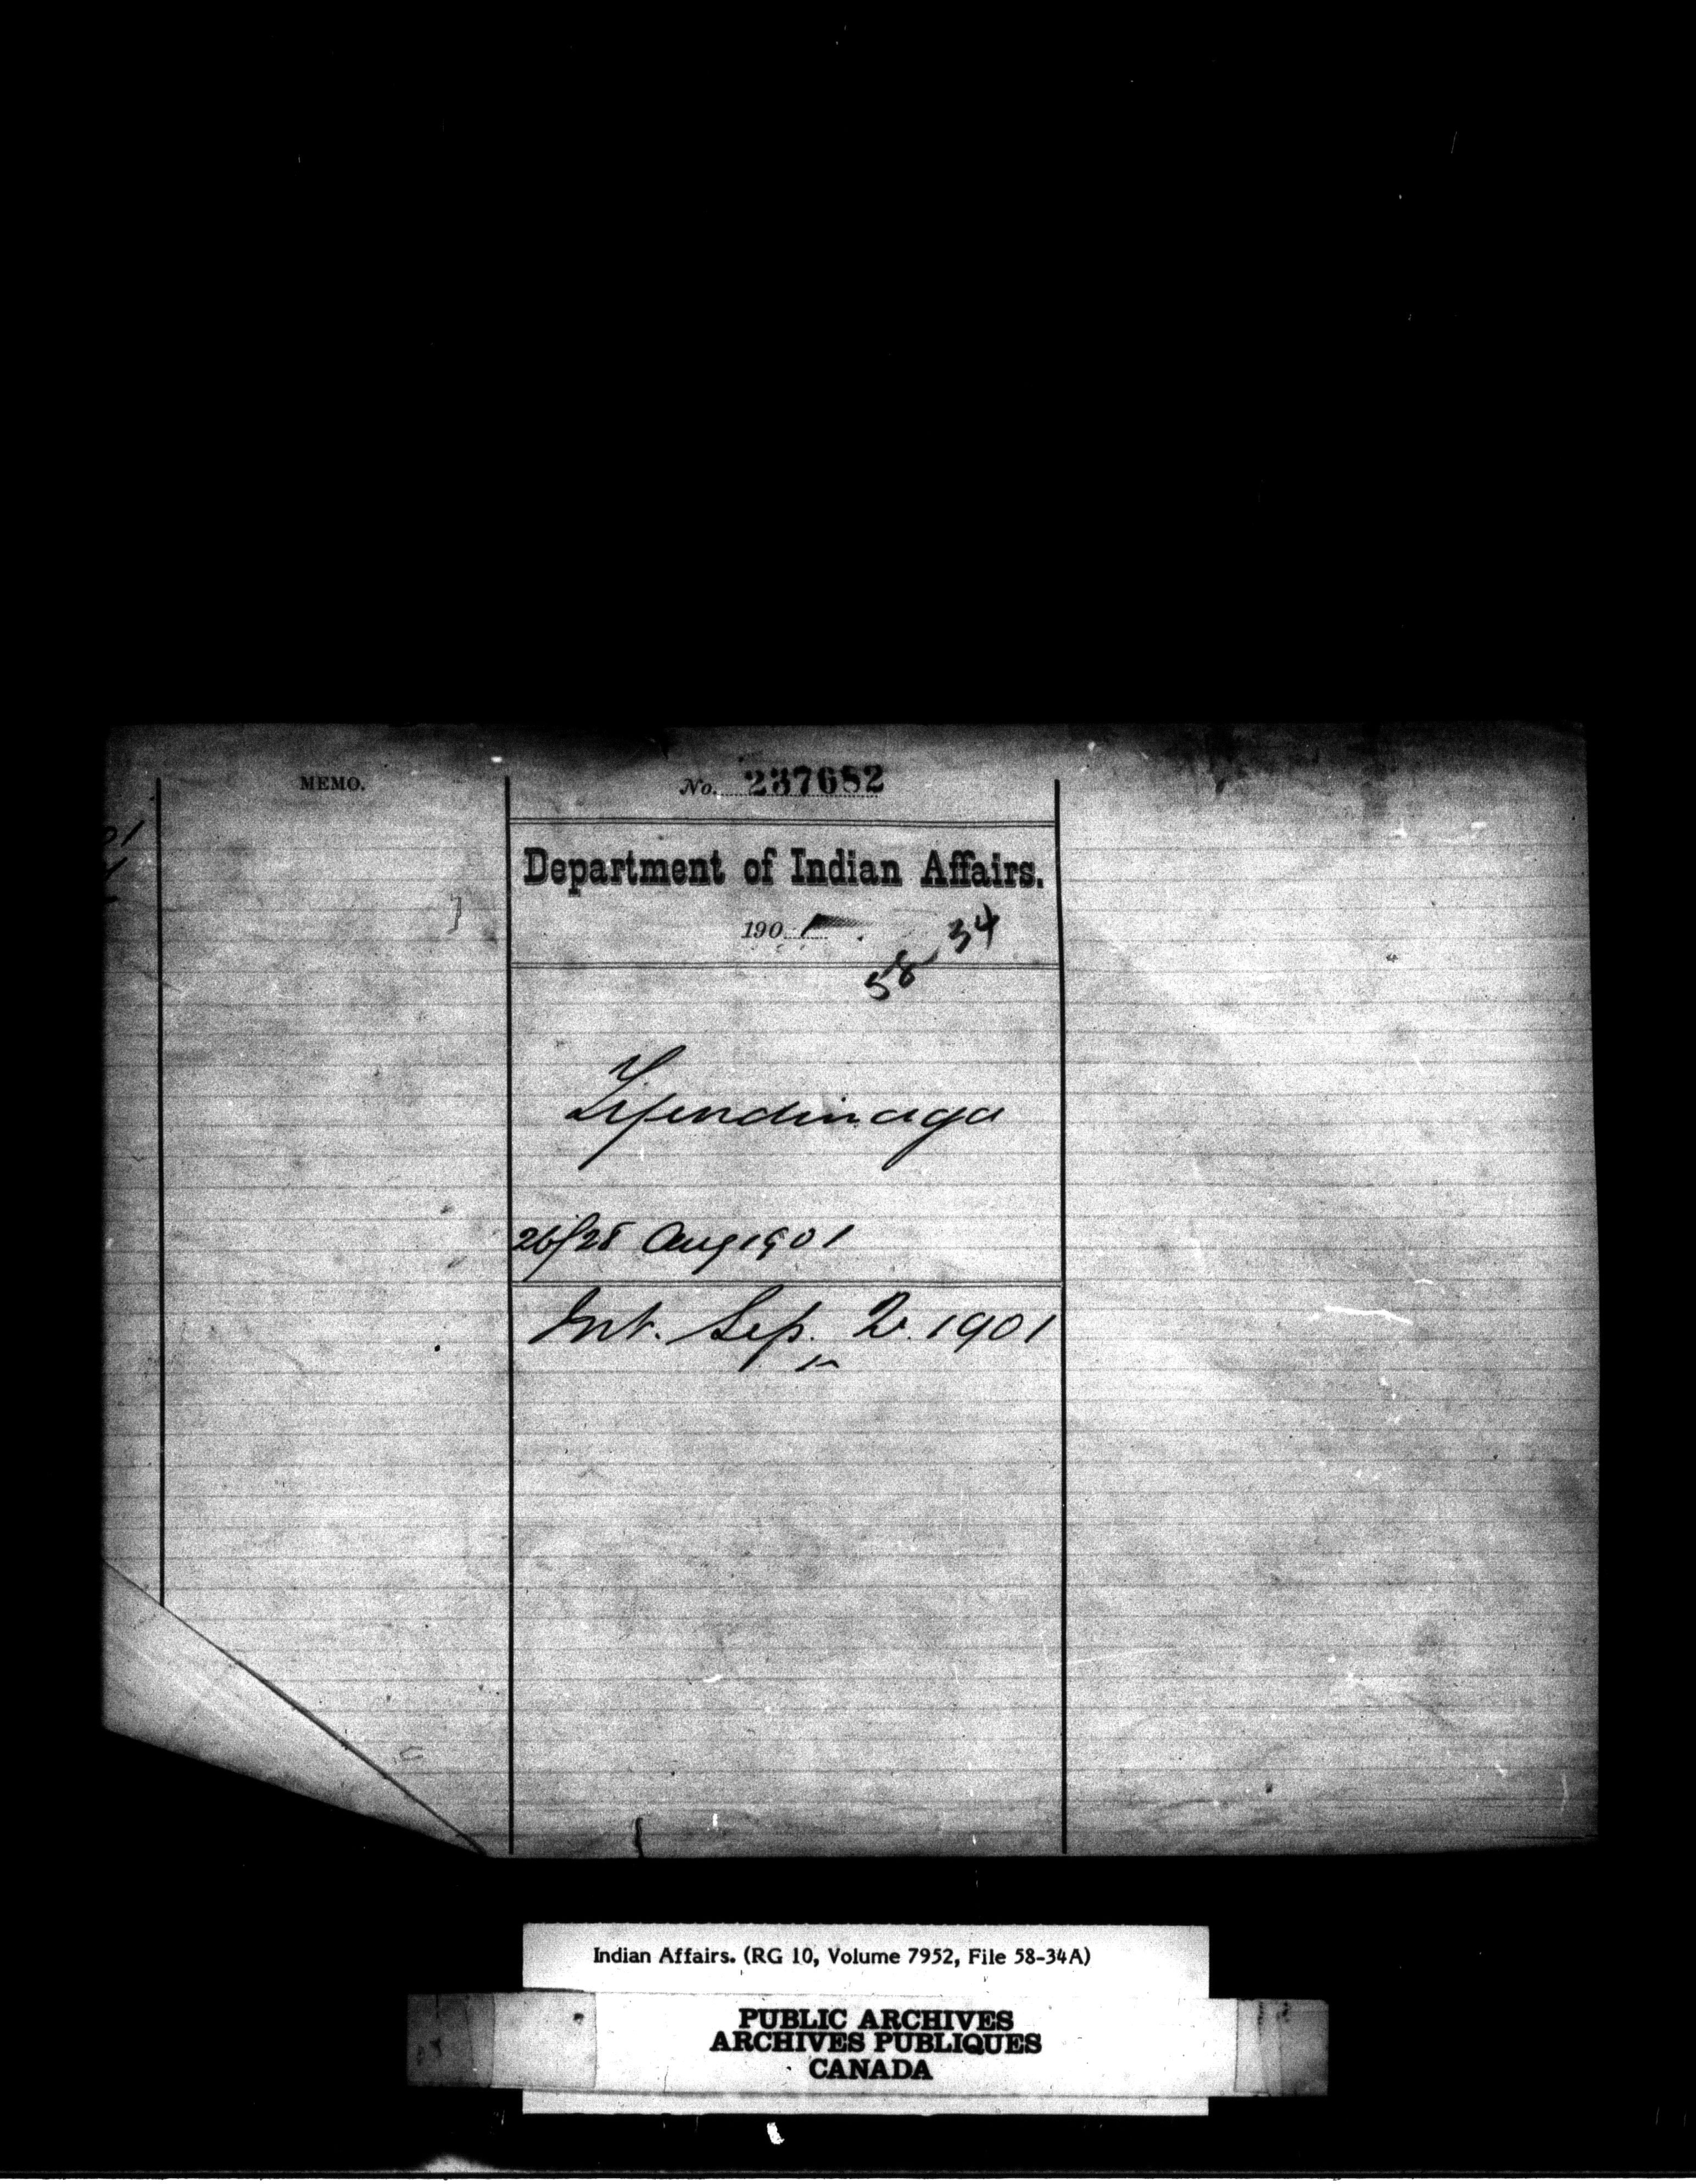 MEMO.
No. 237682
Department of Indian Affairs.
1901
58 34
Tyendinaga
26/28 Aug 1901
Int. Sep. 2. 1901
Indian Affairs. (RG 10, Volume 7952, File 58-34A)
PUBLIC ARCHIVES
ARCHIVES PUBLIQUES
CANADA